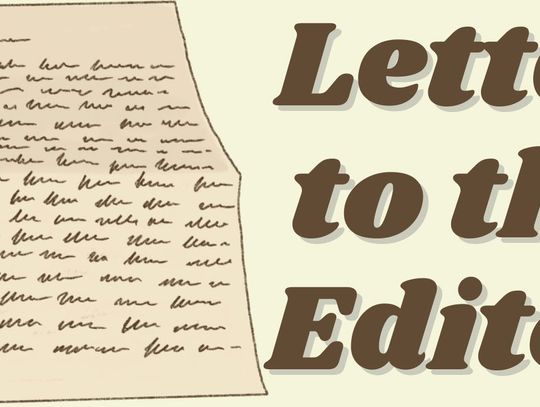 Lette
to th
Edito